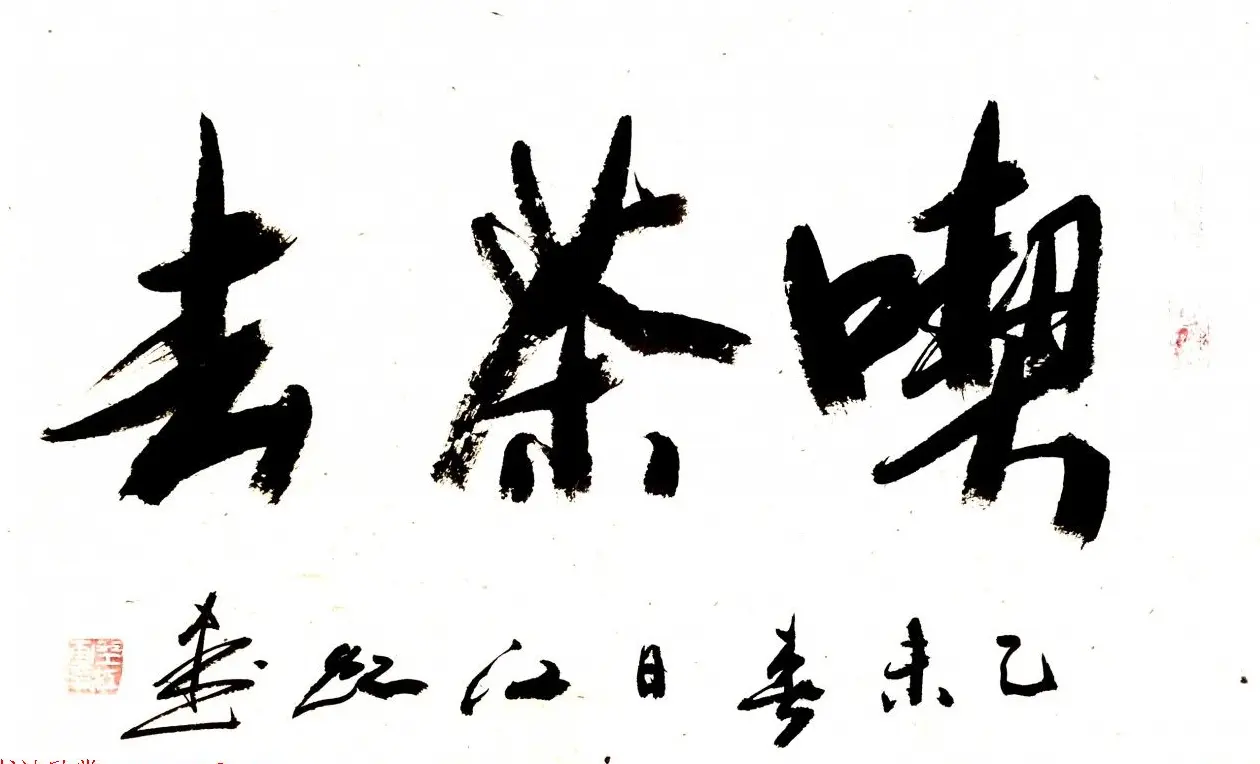 喫茶去
乙未春日江红书